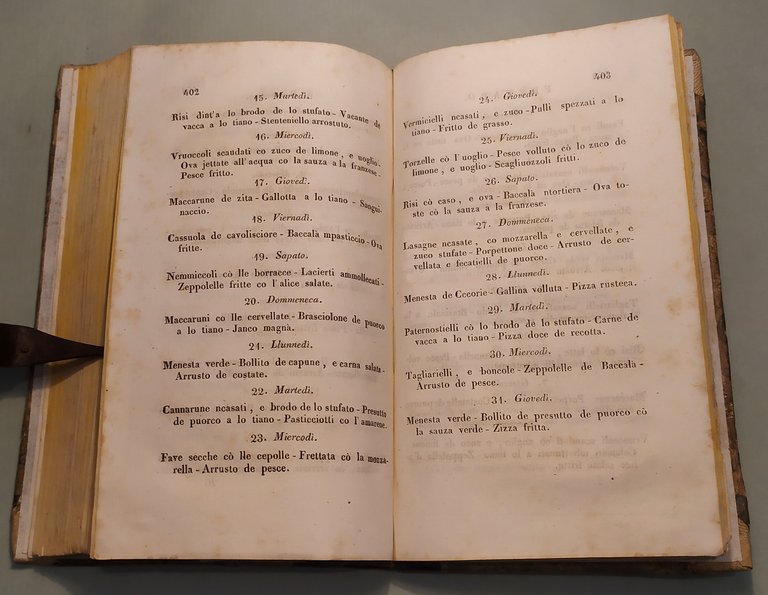 402
15. Martedì.
Risi dint'a lo brodo de lo stufato - Vacante de
vacca a lo tiano - Stenteniello arrostuto.
16. Miercodì.
Vruoccoli scaudati co zuco de limone, e uoglio -
Ova jettate all'acqua co la sauza a la franzese -
Pesce fritto.
17. Giovedì.
Maccarune de zita - Gallotta a lo tiano - Sangui-
naccio.
18. Viernadì.
Cassuola de cavolisciore - Baccalà mpasticcio - Ova
fritte.
19. Sapato.
Nemmiccoli cò lle borracce - Lacierti ammollecati -
Zeppolelle fritte co l'alice salate.
20. Dommeneca.
Maccaruni co lle cervellate - Brasciolone de puorco
a lo tiano - Janco magnà.
21. Llunnedì.
Menesta verde - Bollito de capune, e carna salata -
Arrusto de costate.
22. Martedì.
Cannarune ncasati, e brodo de lo stufato - Presutto
de puorco a lo tiano - Pasticciotti co l'amarene.
23. Miercodì.
Fave secche cò lle cepolle - Frettata cò la mozza-
rella - Arrusto de pesce.
403
24. Giovedì.
Vermicielli ncasati, e zuco - Pulli spezzati a lo
tiano - Fritto de grasso.
25. Viernadì.
Torzelle cò l'uoglio - Pesce volluto cò lo zuco de
limone, e uoglio - Scagliuozzoli fritti.
26. Sapato.
Risi cò caso, e ova - Baccalà ntortiera - Ova to-
ste cò la sauza à la franzese.
27. Dommeneca.
Lasagne ncasate, co mozzarella e cervellate, e
zuco stufato - Porpettone doce - Arrusto de cer-
vellata e fecatielli de puorco.
28. Llunnedì.
Menesta de Cecorie - Gallina volluta - Pizza rusteca.
29. Martedì.
Paternostielli cò lo brodo dè lo stufato - Carne de
vacca a lo tiano - Pizza doce de recotta.
30. Miercodì.
Tagliarielli, e boncole - Zeppolelle de Baccalà -
Arrusto de pesce.
31. Giovedì.
Menesta verde - Bollito de presutto de puorco cò
la sauza verde - Zizza fritta.